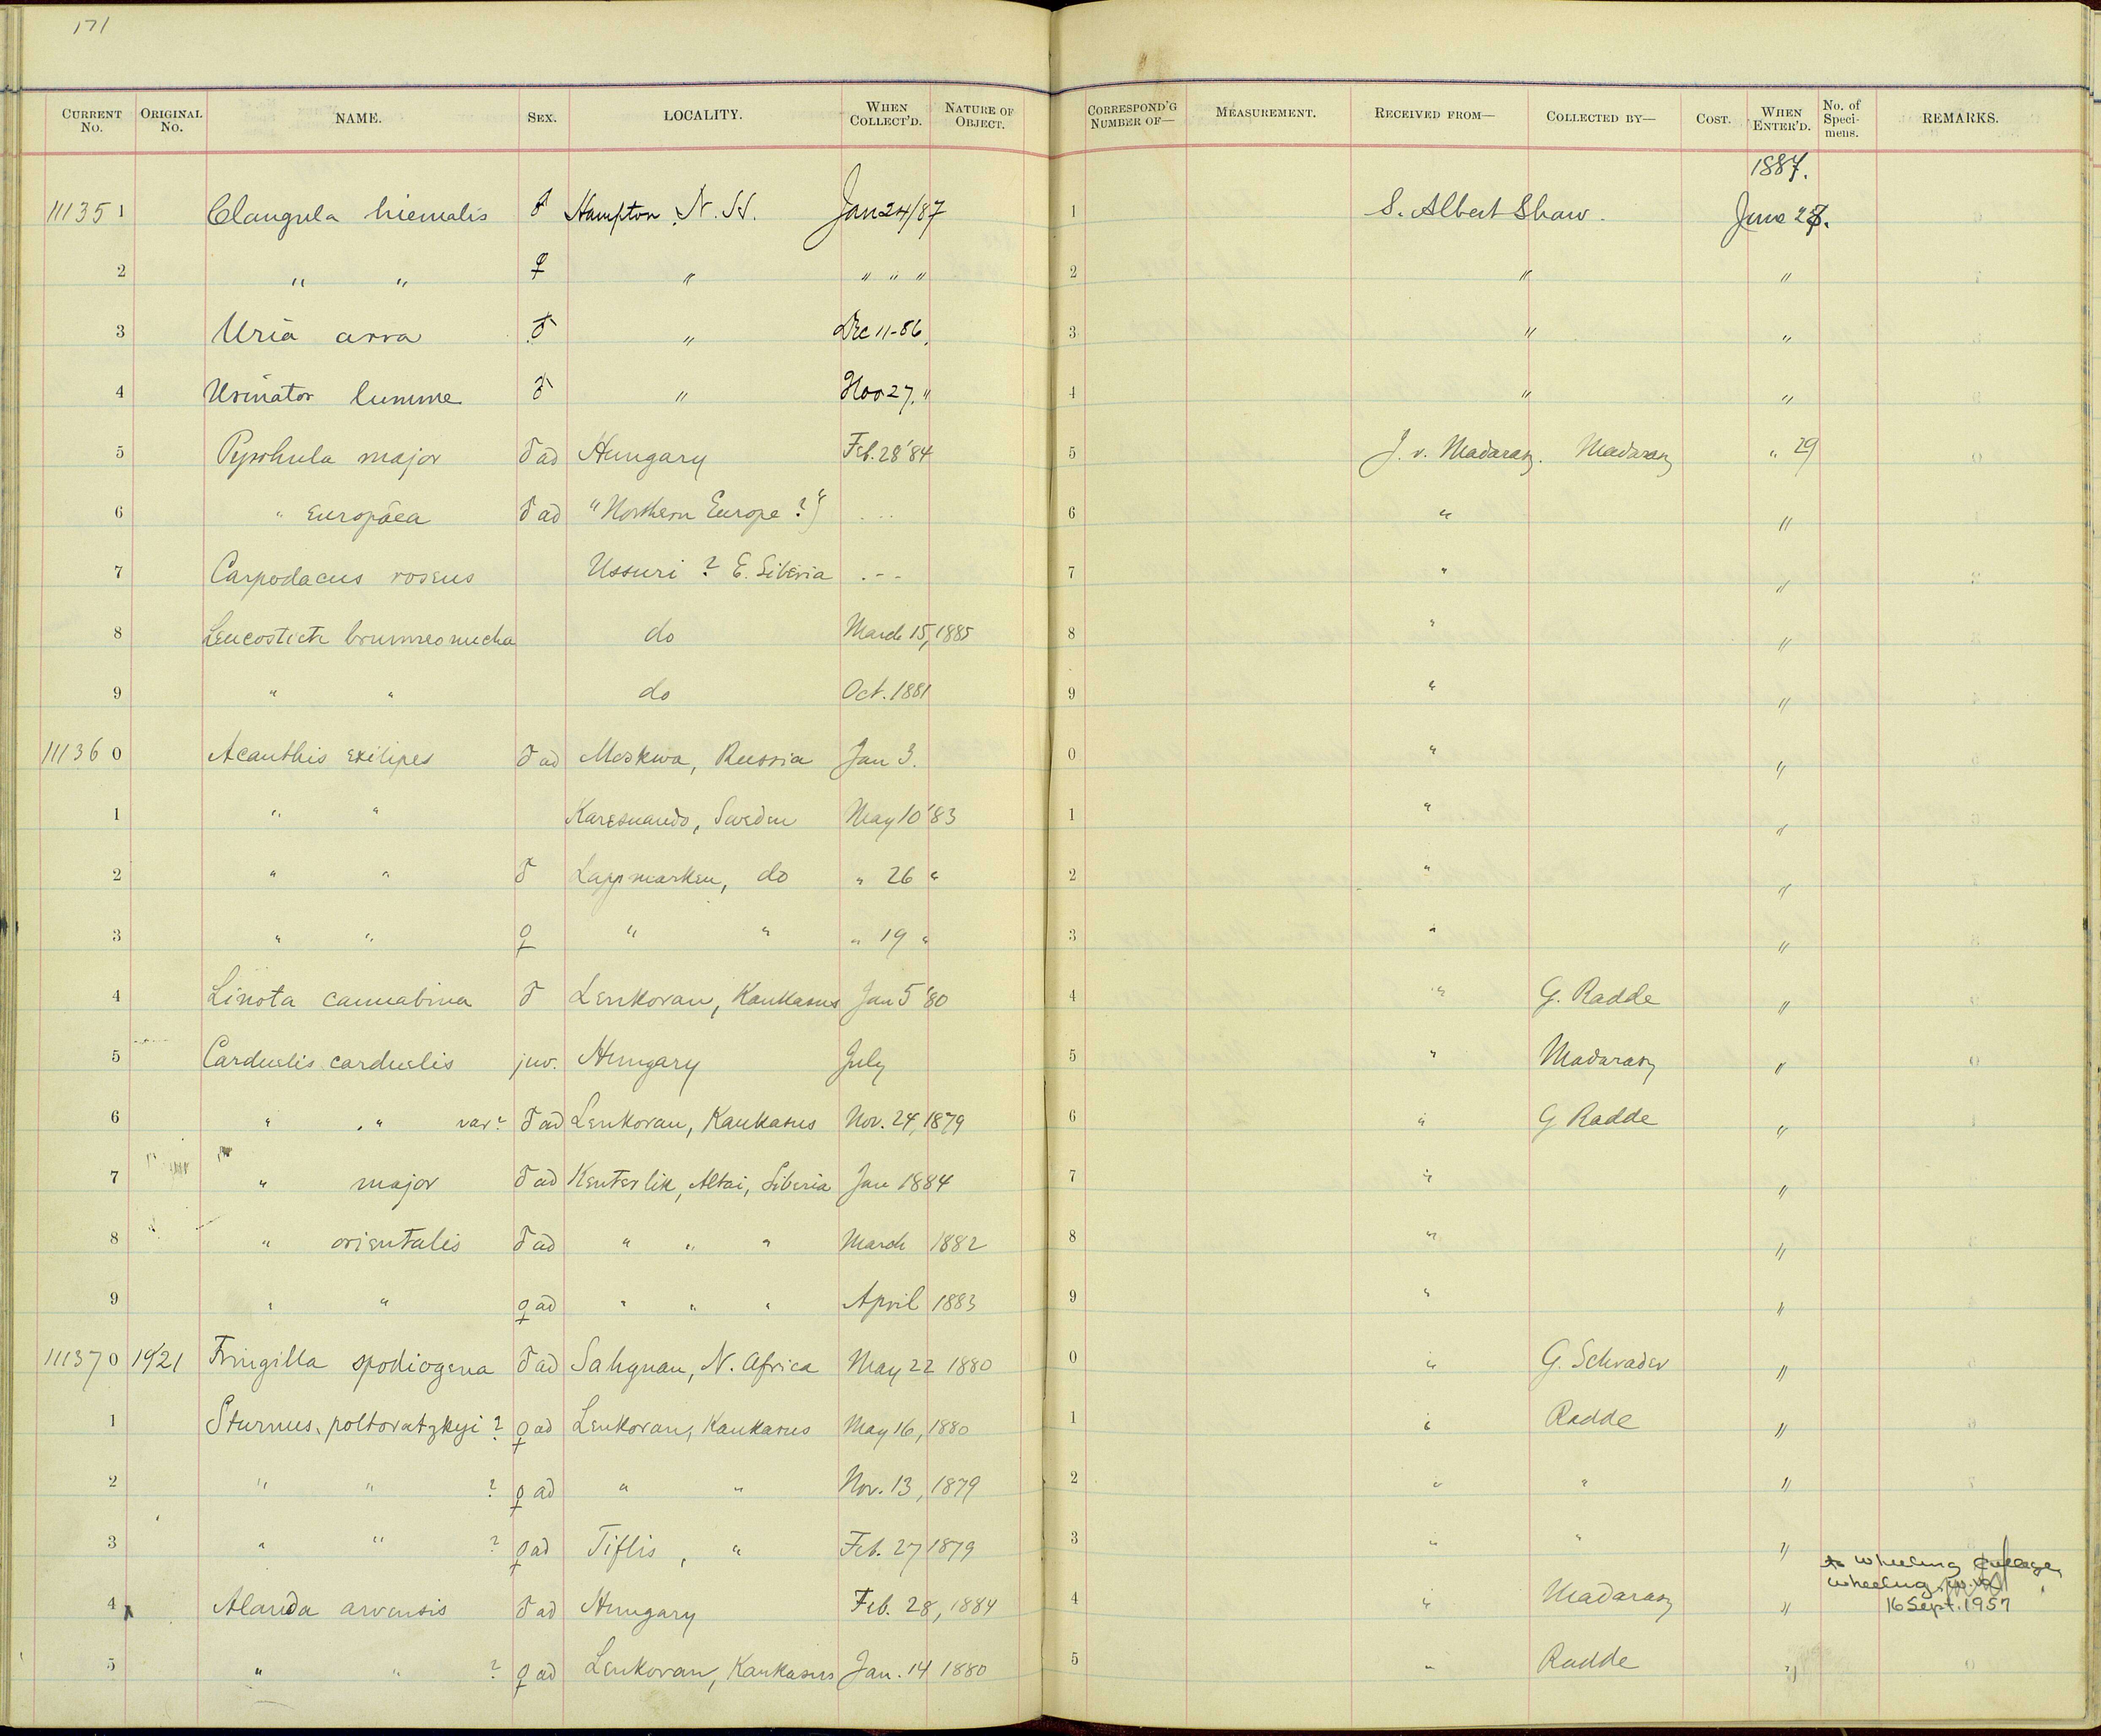 171
CURRENT No. ORIGINAL No. NAME. SEX. LOCALITY. WHEN COLLECT'D. NATURE OF OBJECT. CORRESPOND'G NUMBER OF— MEASUREMENT. RECEIVED FROM— COLLECTED BY— COST. WHEN ENTER'D. No. of Specimens. REMARKS.
1887.
111351 Clangula hiemalis ♂ Hampton N. H. Jan 24/87 1 S. Albert Shaw. June 28.
2 " " ♀ " " " " 2 " "
3 Uria arra ♂ " Dec 11-86. 3 " "
4 Urinator lumme ♂ " Nov 27. " 4 " "
5 Pyrrhula major ♂ ad Hungary Feb. 28 '84 5 J. v. Madarasz. Madarasz " 29
6 " europaea ♂ ad "Northern Europe?" ... 6 " "
7 Carpodacus roseus Ussuri ? E. Siberia . - - 7 " "
8 Leucosticte brunneonucha do March 15, 1885 8 " "
9 " " do Oct. 1881 9 " "
111360 Acanthis exilipes ♂ ad Moskwa, Russia Jan 3. 0 " "
1 " " Karesuando, Sweden May 10 '83 1 " "
2 " " ♂ Lappmarken, do " 26 " 2 " "
3 " " ♀ " " " 19 " 3 " "
4 Linota cannabina ♂ Lenkoran, Kaukasus Jan 5 '80 4 " G. Radde "
5 Carduelis carduelis juv. Hungary July 5 " Madarasz "
6 " " var? ♂ ad Lenkoran, Kaukasus Nov. 24, 1879 6 " G Radde "
7 " major ♂ ad Kenterlik, Altai, Siberia Jan 1884 7 " "
8 " orientalis ♂ ad " " " March 1882 8 " "
9 " " ♀ ad " " " April 1883 9 " "
111370 19/21 Fringilla spodiogena ♂ ad Sahguan, N. Africa May 22 1880 0 " G. Schrader "
1 Sturnus poltoratzkyi ? ♀ ad Lenkoran, Kaukasus May 16, 1880 1 " Radde "
2 " " ? ♀ ad " " Nov. 13, 1879 2 " " "
3 " " ? ♀ ad Tiflis, " Feb. 27 1879 3 " " "
to Wheeling College,
Wheeling, W. Va
4 Alauda arvensis ♂ ad Hungary Feb. 28, 1884 4 " Madarasz " 16 Sept. 1957
5 " " ? ♀ ad Lenkoran, Kaukasus Jan. 14 1880 5 " Radde "